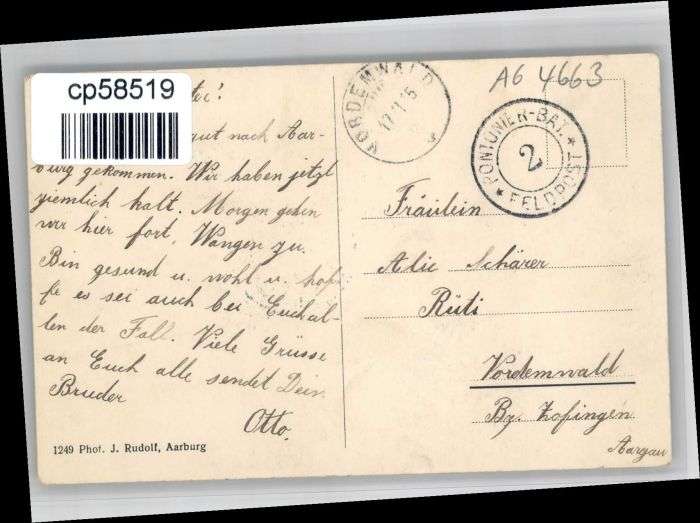 cp58519
A6 4663
VORDEMWALD
17.1.15
PONTONIER-BAT.
2
FELDPOST
gut nach Aar-
burg gekommen. Wir haben jetzt
ziemlich kalt. Morgen gehen
wir hier fort, Wangen zu.
Bin gesund u. wohl u. hof-
fe es sei auch bei Euch al-
len der Fall. Viele Grüsse
an Euch alle sendet Dein
Bruder
Otto.
1249 Phot. J. Rudolf, Aarburg
Fräulein
Alic Schärer
Rüti
Vordemwald
Bz. Zofingen
Aargau